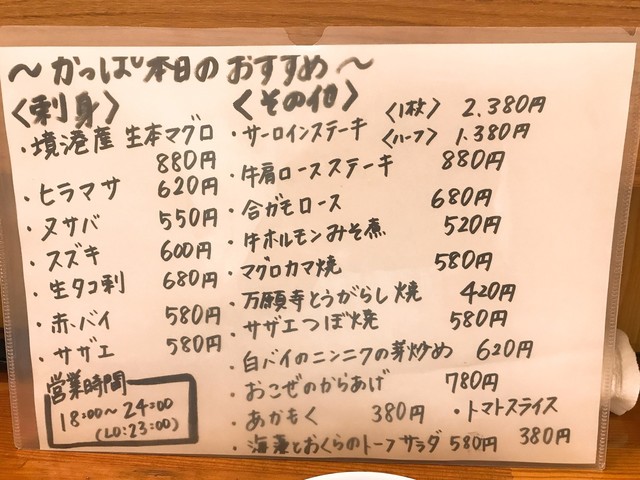 ～かっぱ本日のおすすめ～
〈刺身〉
・境港産 生本マグロ
880円
・ヒラマサ 620円
・〆サバ 550円
・スズキ 600円
・生タコ刺 680円
・赤バイ 580円
・サザエ 580円
営業時間
18:00～24:00
(LO:23:00)
〈その他〉
・サーロインステーキ 〈1枚〉 2.380円
〈ハーフ〉 1.380円
・牛肩ロースステーキ 880円
・合ガモロース 680円
・牛ホルモンみそ煮 520円
・マグロカマ焼 580円
・万願寺とうがらし焼 420円
・サザエつぼ焼 580円
・白バイのニンニクの芽炒め 620円
・おこぜのからあげ 780円
・あかもく 380円 ・トマトスライス
380円
・海藻とおくらのトーフサラダ 580円